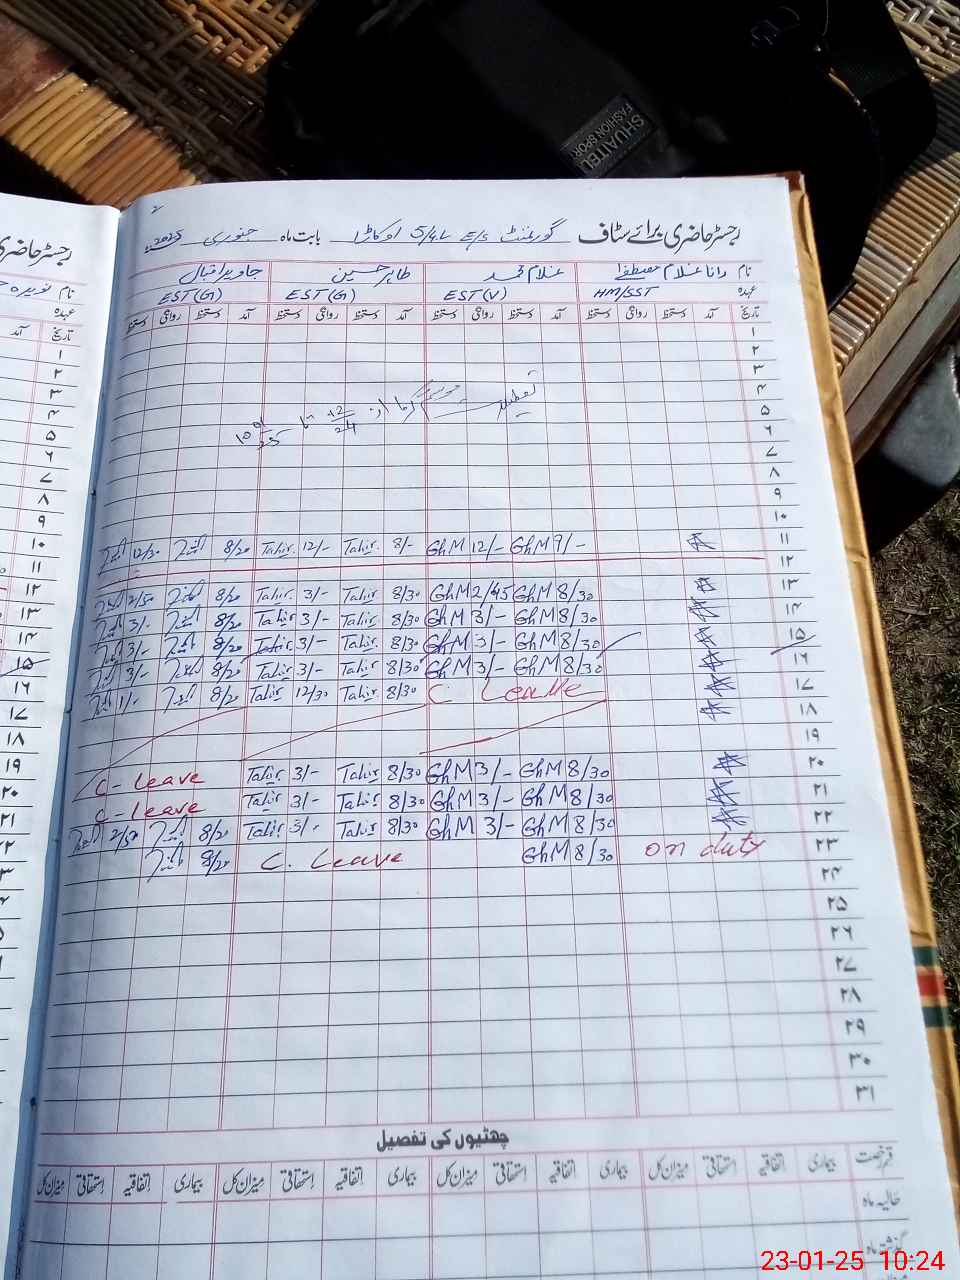 SHUAITEL
FASHION SPORT
رجسٹر حاضری برائے سٹاف گورنمنٹ E/S 5/4L اوکاڑا بابت ماہ جنوری 2025
نام رانا غلام مصطفیٰ غلام محمد طاہر حسین جاوید اقبال
عہدہ HM/SST EST(V) EST(G) EST(G)
تاریخ آمد دستخط روانگی دستخط آمد دستخط روانگی دستخط آمد دستخط روانگی دستخط آمد دستخط روانگی دستخط
۱
۲
۳
۴
تعطیلات موسم گرما از 12/24 تا
۵
۶
۷
۸
۹
۱۰
۱۱ GhM 9/- GhM 12/- Tahir 8/- Tahir 12/- 8/20 12/30
۱۲
۱۳ GhM 8/30 GhM 2/45 Tahir 8/30 Tahir 3/- 8/20 2/50
۱۴ GhM 8/30 GhM 3/- Tahir 8/30 Tahir 3/- 8/20 3/-
۱۵ GhM 8/30 GhM 3/- Tahir 8/30 Tahir 3/- 8/20 3/-
۱۶ GhM 8/30 GhM 3/- Tahir 8/30 Tahir 3/- 8/20 3/-
۱۷ C. Leave Tahir 8/30 Tahir 12/30 8/20 1/-
۱۸
۱۹
۲۰ GhM 8/30 GhM 3/- Tahir 8/30 Tahir 3/- C-Leave
۲۱ GhM 8/30 GhM 3/- Tahir 8/30 Tahir 3/- C-Leave
۲۲ GhM 8/30 GhM 3/- Tahir 8/30 Tahir 3/- 8/20 2/50
۲۳ on duty GhM 8/30 C. Leave 8/20
۲۴
۲۵
۲۶
۲۷
۲۸
۲۹
۳۰
۳۱
چھٹیوں کی تفصیل
قسم رخصت بیماری اتفاقیہ استحقاقی میزان کل بیماری اتفاقیہ استحقاقی میزان کل بیماری اتفاقیہ استحقاقی میزان کل بیماری اتفاقیہ استحقاقی میزان کل
حالیہ ماہ
گذشتہ ماہ
رجسٹر حاضری
نام
عہدہ
تاریخ آمد
۱
۲
۳
۴
۵
۶
۷
۸
۹
۱۰
۱۱
۱۲
۱۳
۱۴
۱۵
۱۶
۱۷
۱۸
۱۹
۲۰
۲۱
23-01-25 10:24